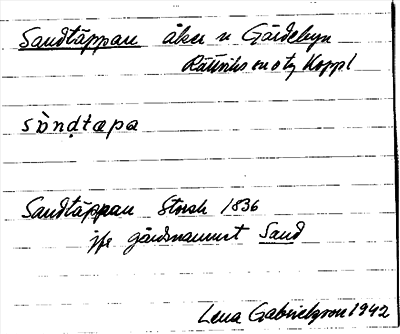 Sandtäppan åker u Gärdebyn
Rättviks sn o tg Kopp l
sòndtæpa
Sandtäppan Storsk 1836
jfr gårdsnamnet Sand
Lena Gabrielsson 1942